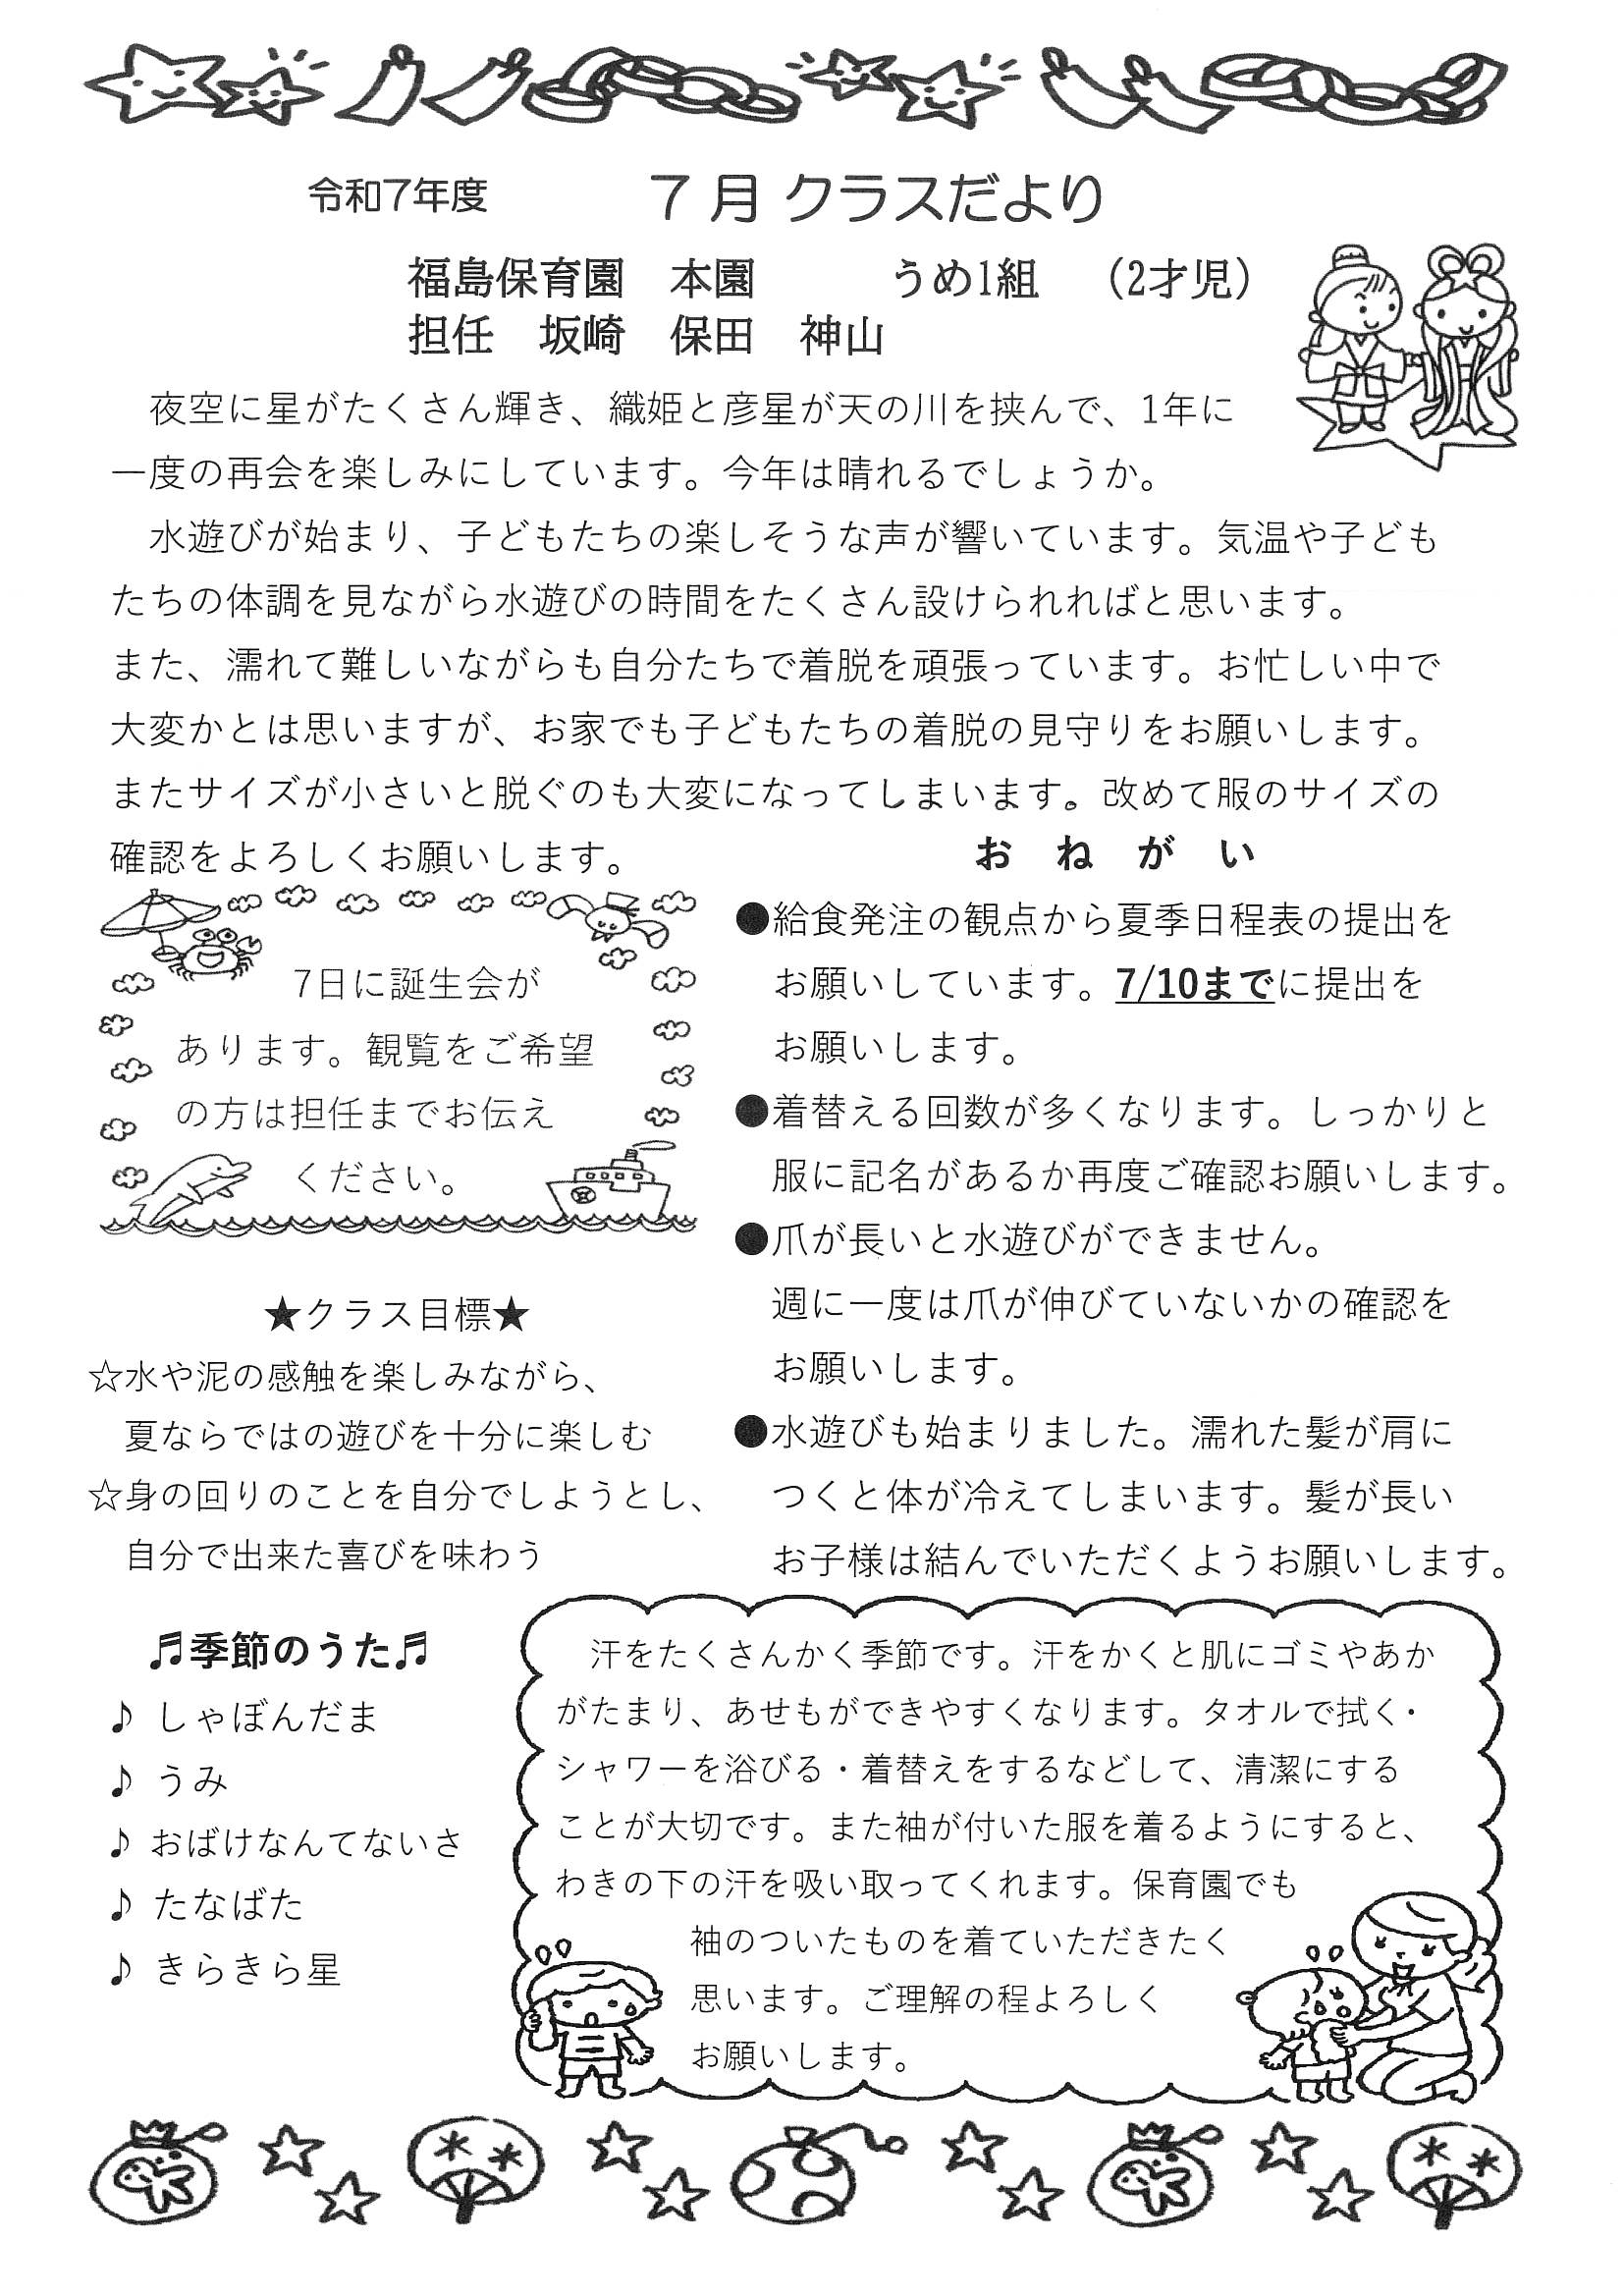 令和7年度　7 月 クラスだより
福島保育園　本園　うめ1組　（2才児）
担任　坂崎　保田　神山
夜空に星がたくさん輝き、織姫と彦星が天の川を挟んで、1年に
一度の再会を楽しみにしています。今年は晴れるでしょうか。
水遊びが始まり、子どもたちの楽しそうな声が響いています。気温や子ども
たちの体調を見ながら水遊びの時間をたくさん設けられればと思います。
また、濡れて難しいながらも自分たちで着脱を頑張っています。お忙しい中で
大変かとは思いますが、お家でも子どもたちの着脱の見守りをお願いします。
またサイズが小さいと脱ぐのも大変になってしまいます。改めて服のサイズの
確認をよろしくお願いします。
7日に誕生会が
あります。観覧をご希望
の方は担任までお伝え
ください。
★クラス目標★
☆水や泥の感触を楽しみながら、
夏ならではの遊びを十分に楽しむ
☆身の回りのことを自分でしようとし、
自分で出来た喜びを味わう
おねがい
●給食発注の観点から夏季日程表の提出を
お願いしています。7/10までに提出を
お願いします。
●着替える回数が多くなります。しっかりと
服に記名があるか再度ご確認お願いします。
●爪が長いと水遊びができません。
週に一度は爪が伸びていないかの確認を
お願いします。
●水遊びも始まりました。濡れた髪が肩に
つくと体が冷えてしまいます。髪が長い
お子様は結んでいただくようお願いします。
♬季節のうた♬
♪ しゃぼんだま
♪ うみ
♪ おばけなんてないさ
♪ たなばた
♪ きらきら星
汗をたくさんかく季節です。汗をかくと肌にゴミやあか
がたまり、あせもができやすくなります。タオルで拭く・
シャワーを浴びる・着替えをするなどして、清潔にする
ことが大切です。また袖が付いた服を着るようにすると、
わきの下の汗を吸い取ってくれます。保育園でも
袖のついたものを着ていただきたく
思います。ご理解の程よろしく
お願いします。